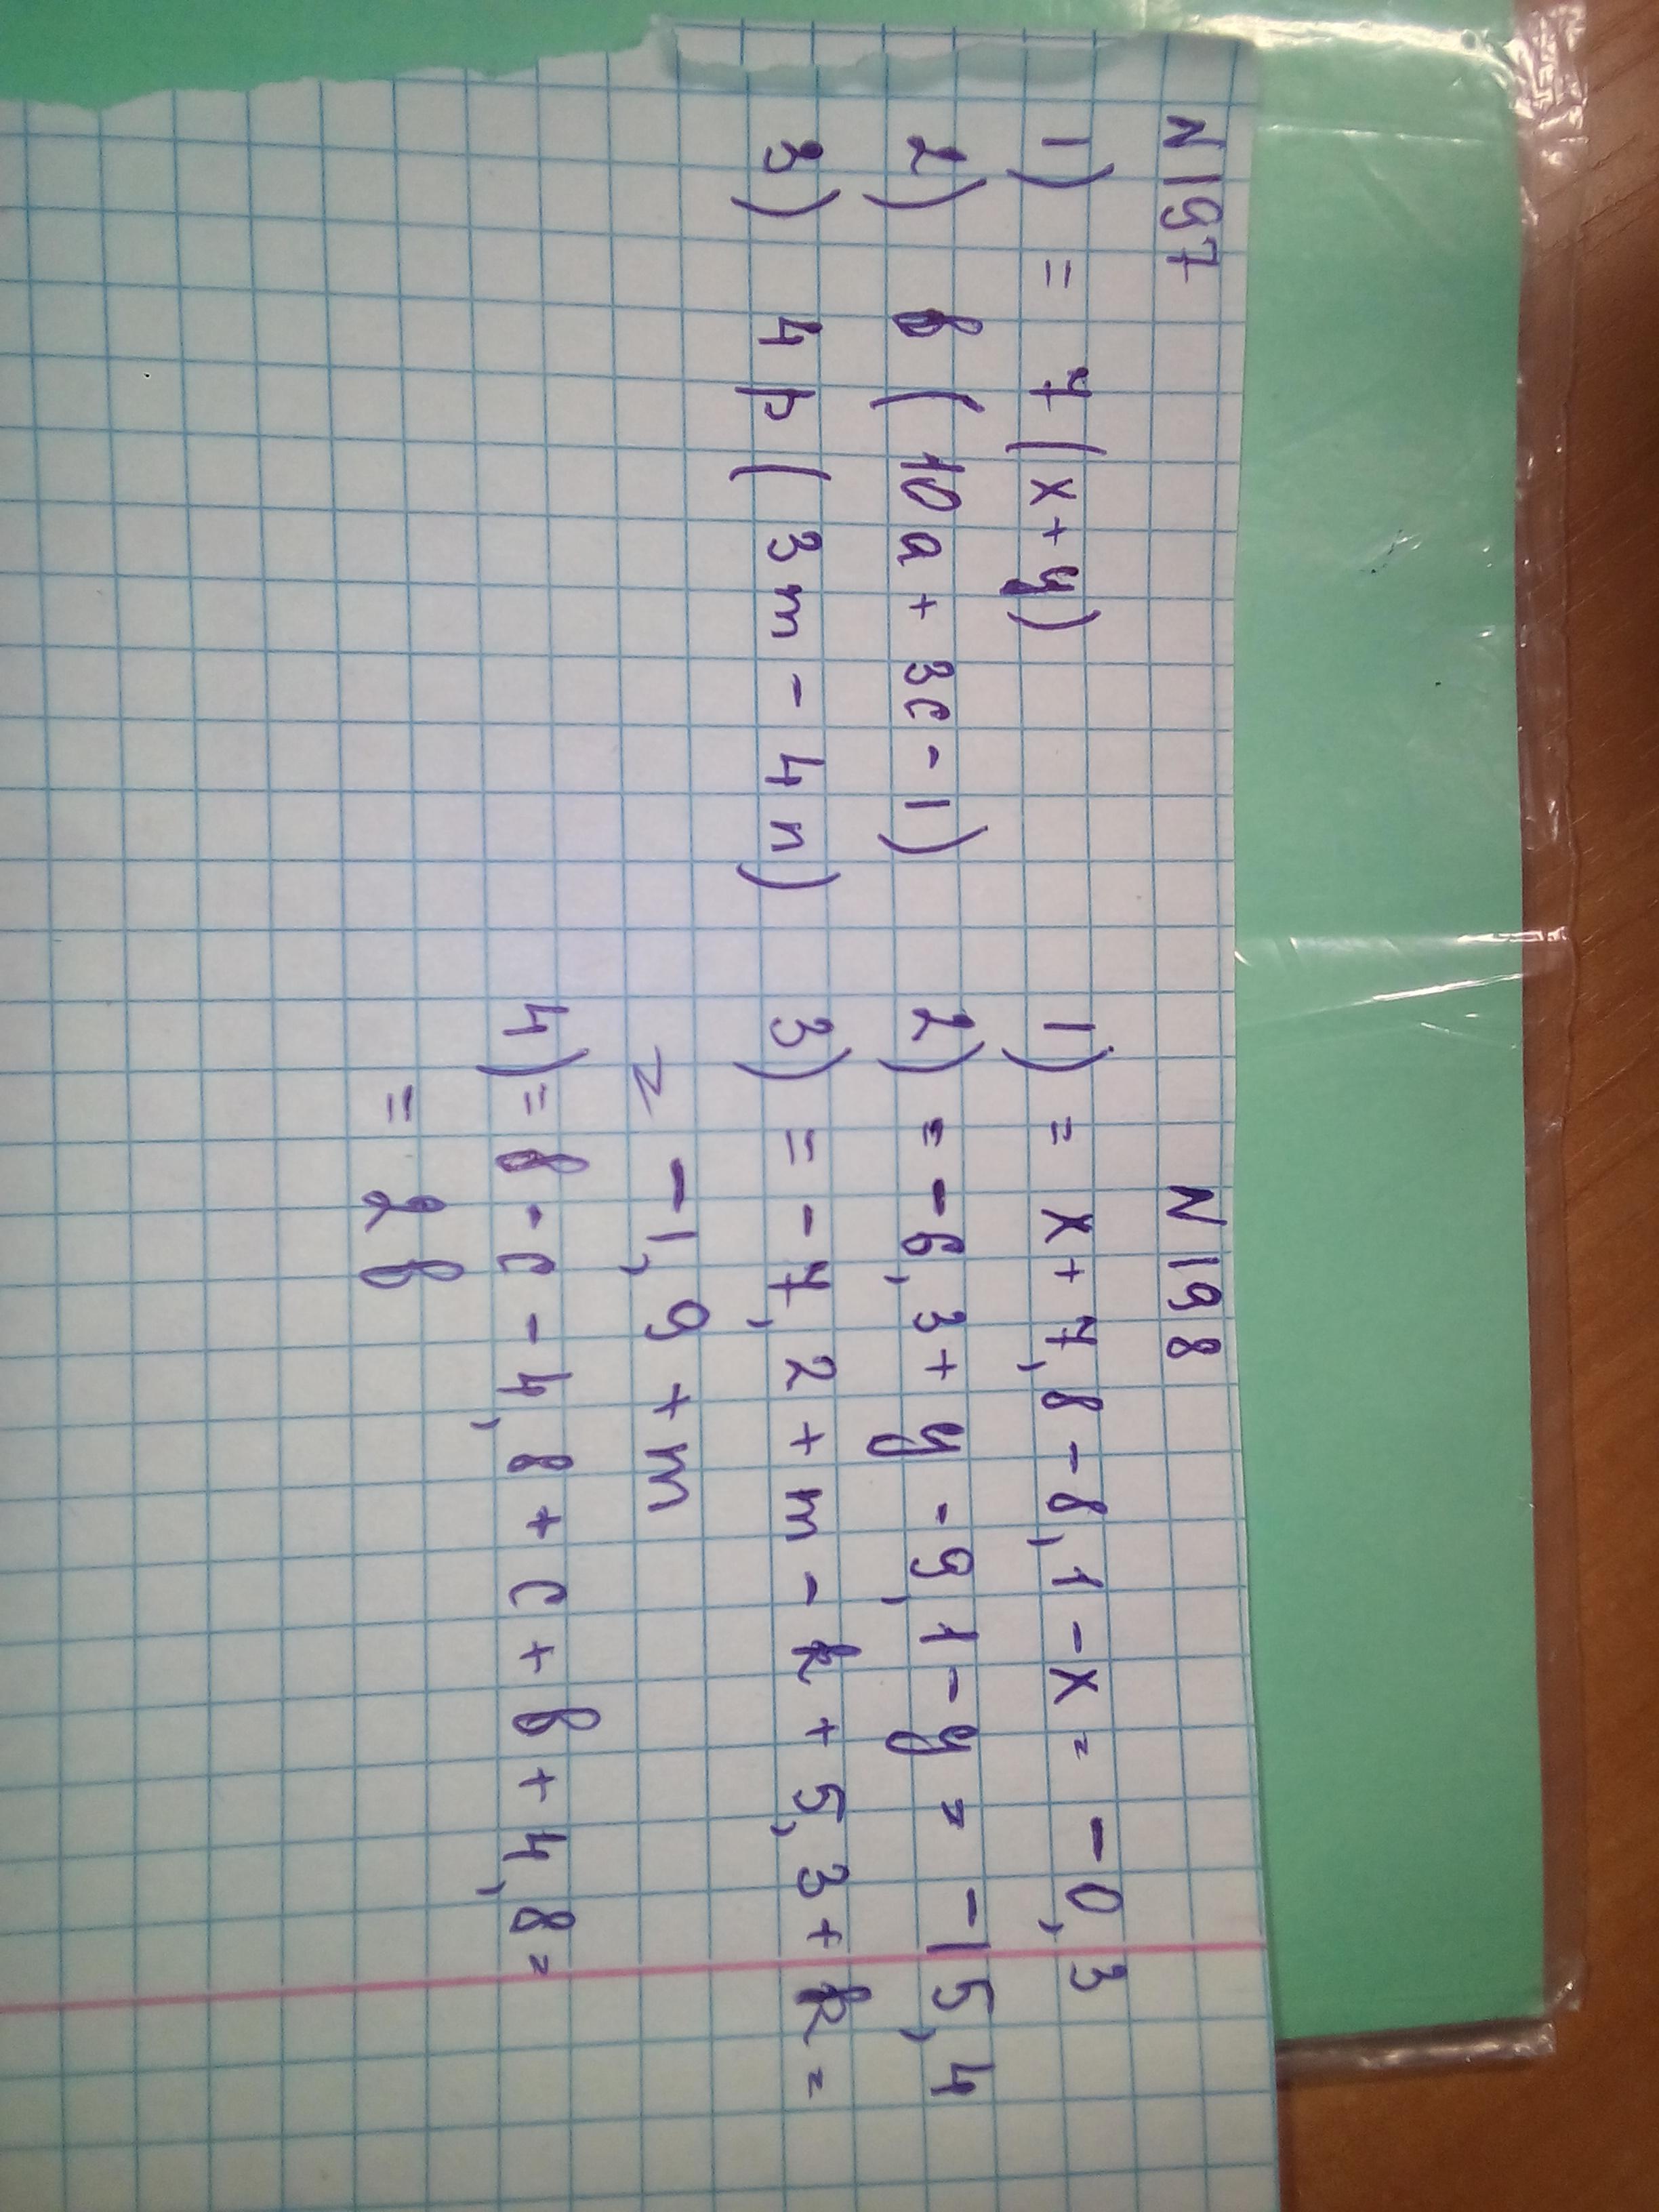 N197
1) = 7(x+y)
2) b(10a+3c-1)
3) 4p(3m-4n)
N198
1) = x+7,8-8,1-x= -0,3
2) = -6,3+y-9,1-y= -15,4
3) = -7,2+m-k+5,3+k=
= -1,9+m
4) = b-c-4,8+c+b+4,8=
= 2b